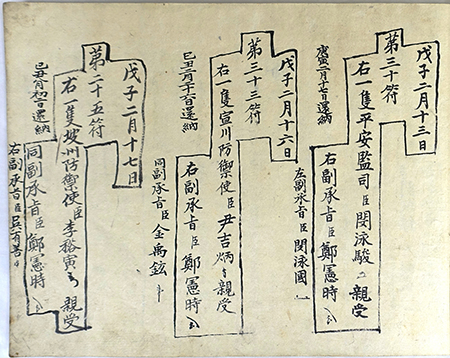 戊子二月十三日
第三十符
右一隻平安監司臣閔泳駿 親受
右副承旨臣鄭憲時
庚寅二月十七日還納
左副承旨臣閔泳國
戊子二月十六日
第三十三符
右一隻宣川防禦使臣尹吉炳 親受
右副承旨臣鄭憲時
己丑二月十六日還納
同副承旨臣金禹鉉
戊子二月十七日
第二十五符
右一隻坡州防禦使臣李裕寅 親受
同副承旨臣鄭憲時
右副承旨臣吳有善